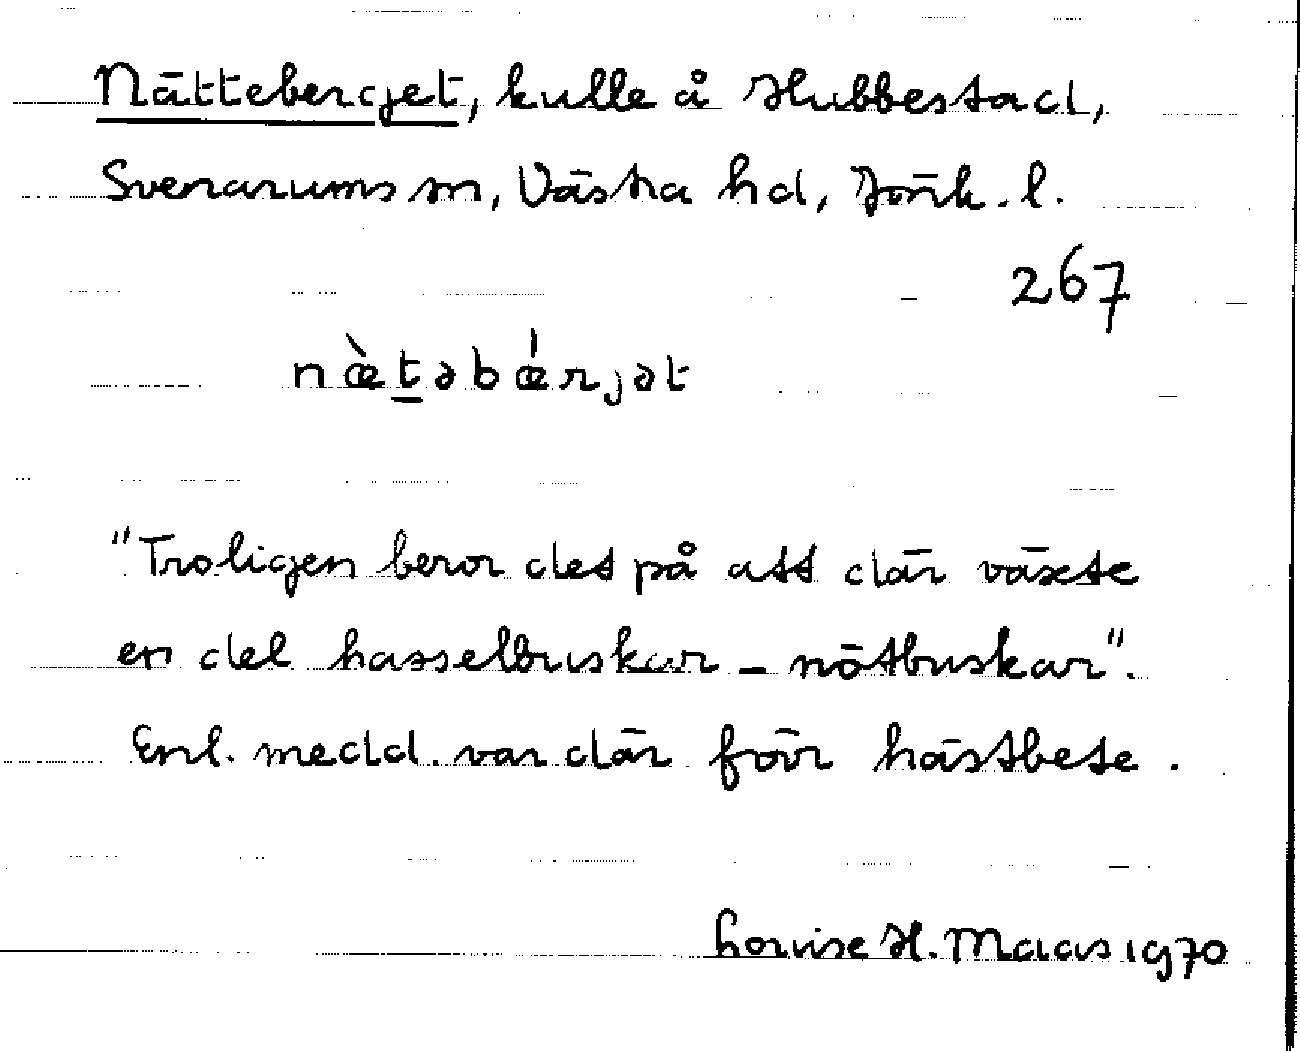 Nätteberget, kulle å Hubbestad,
Svenarums sn, Västra hd, Jönk. l.
267
næ̀t̲əbǽrjət
"Troligen beror det på att där växte
en del hasselbuskar – nötbuskar".
Enl. medd. var där förr hästbete.
Louise H. Maas 1970